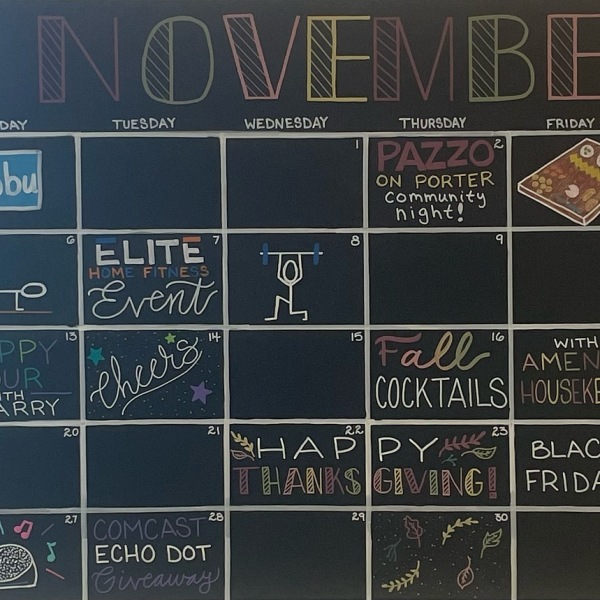 NOVEMBE
DAY TUESDAY WEDNESDAY THURSDAY FRIDAY
bu
1
2
PAZZO
ON PORTER
Community
night!
6
7
ELITE
HOME FITNESS
Event
8
9
13
PPY
UR
ITH
ARRY
14
Cheers
15
16
Fall
COCKTAILS
WITH
AMEN
HOUSEKE
20
21
22
23
HAPPY
THANKSGIVING!
BLAC
FRIDA
27
28
COMCAST
ECHO DOT
Giveaway
29
30